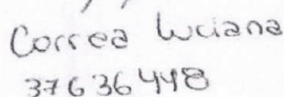 Correa Luciana
37636448